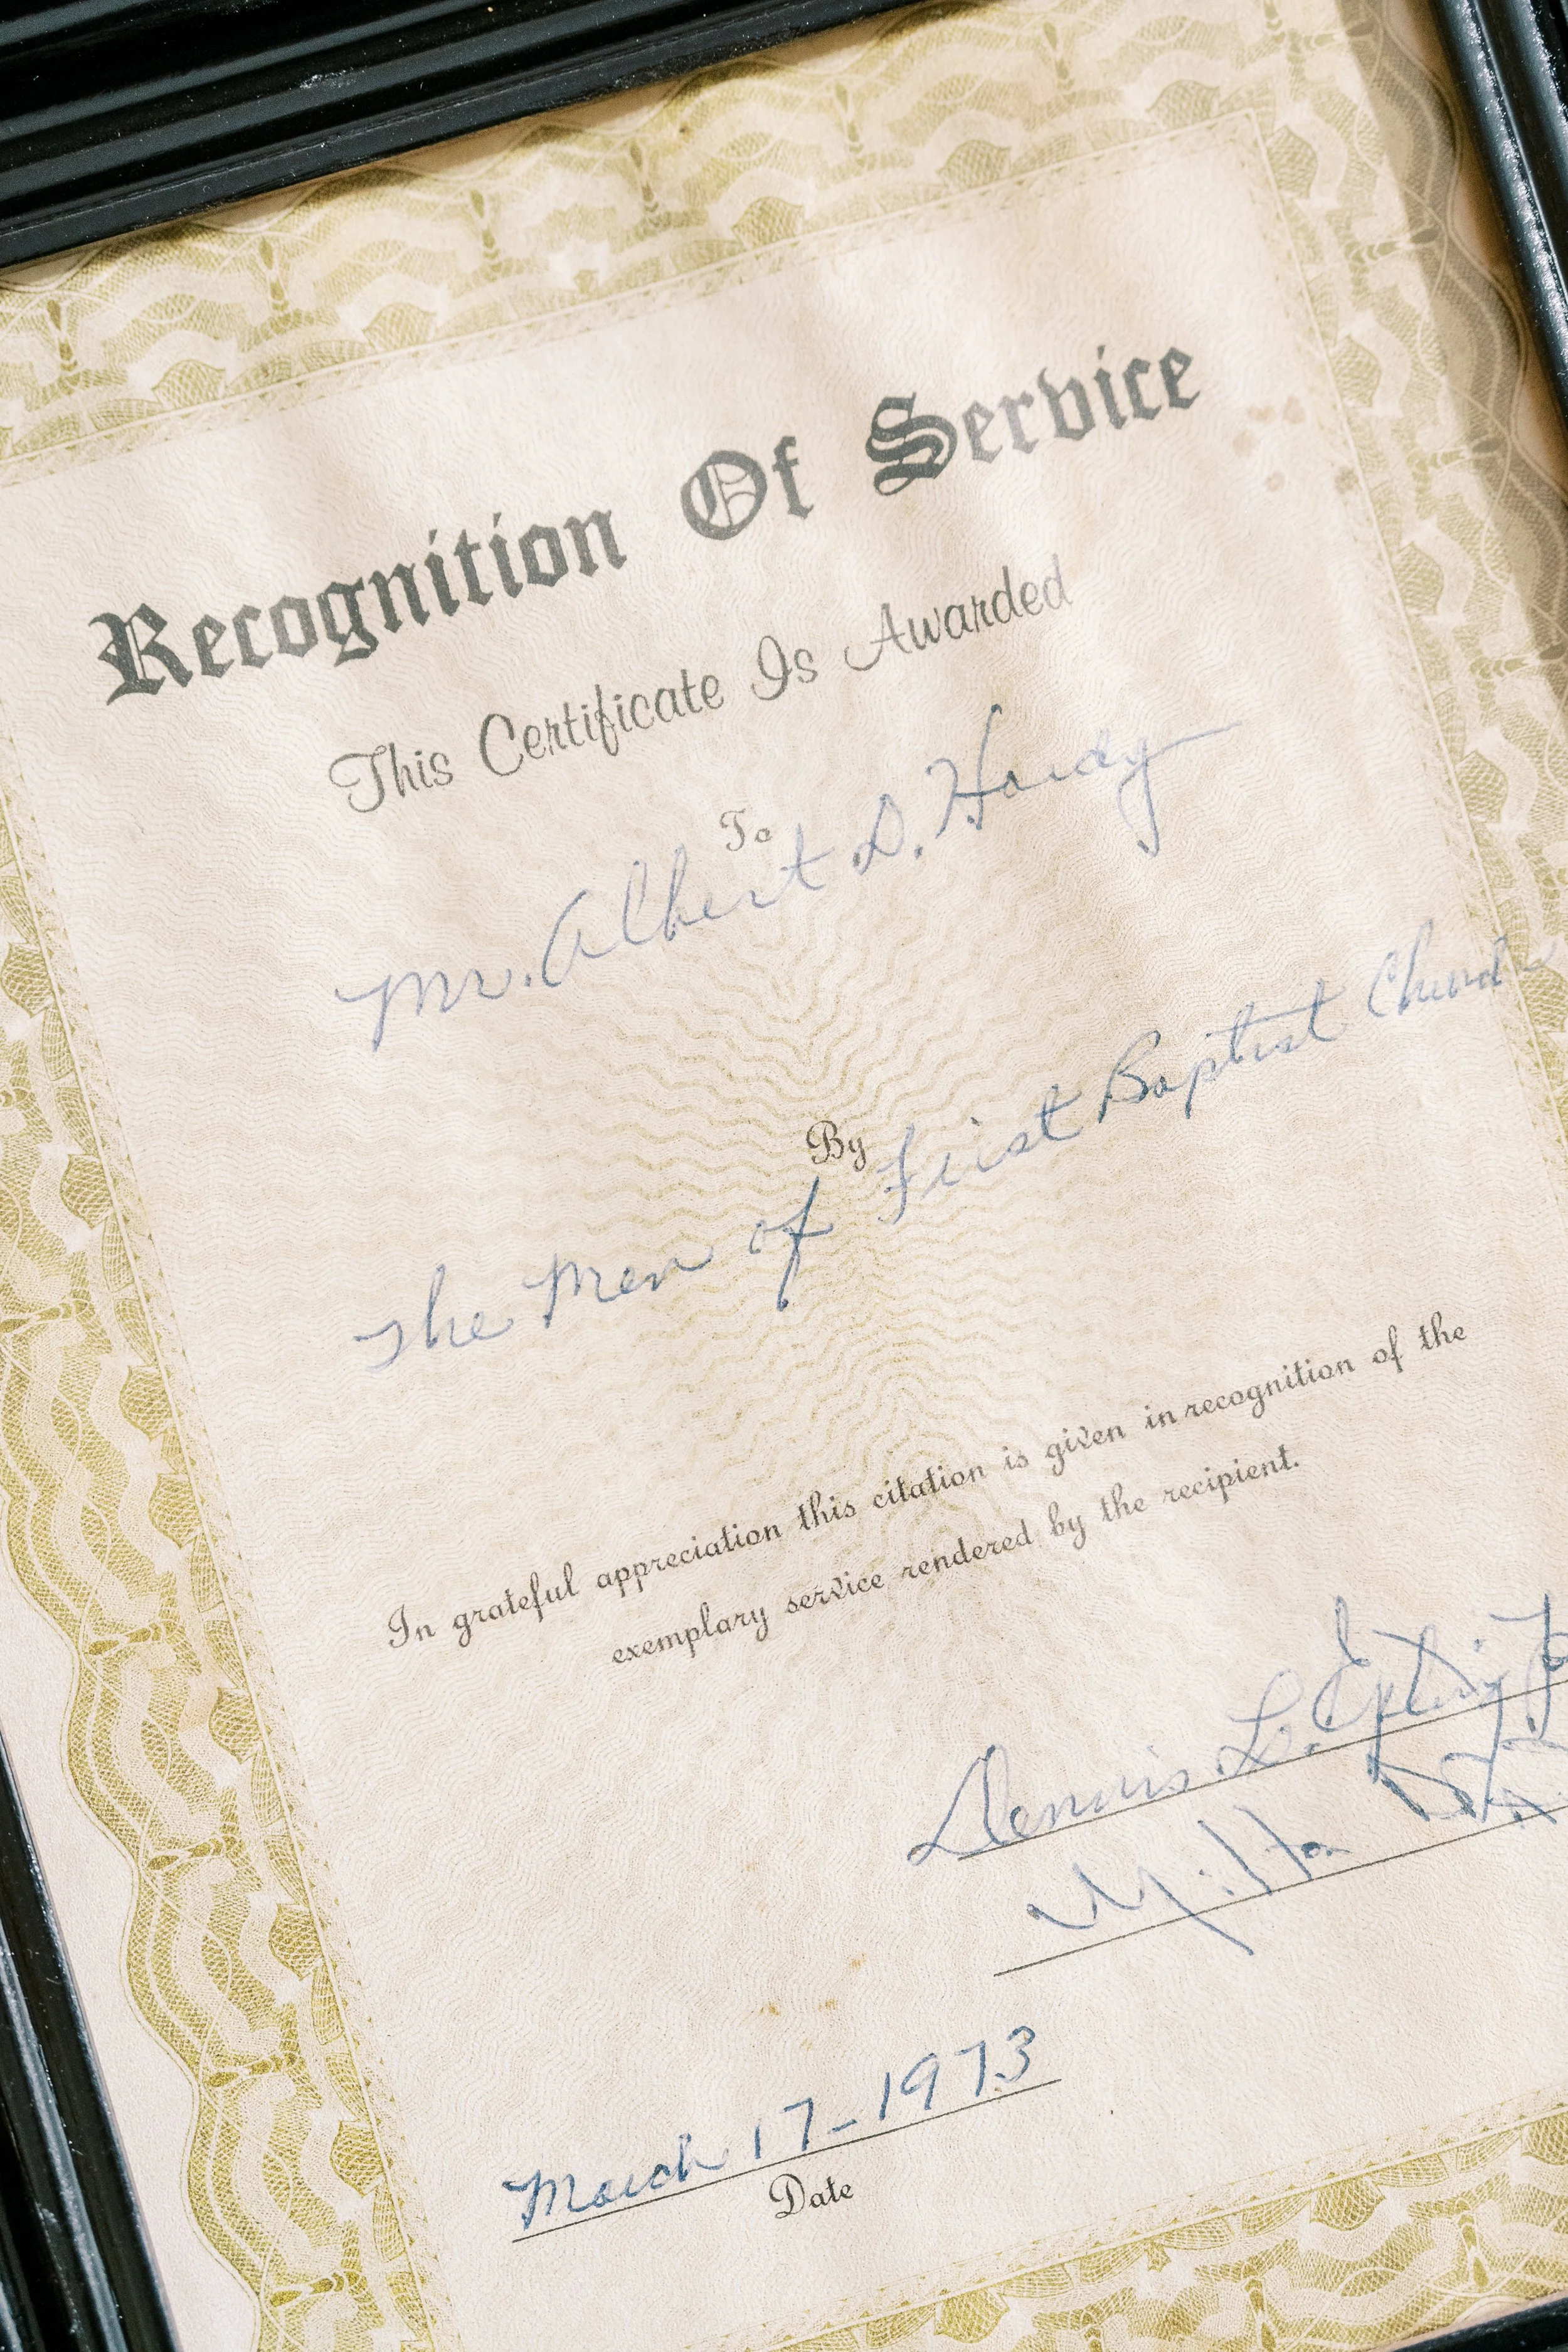 Recognition Of Service
This Certificate Is Awarded
To
Mr. Albert D. Hardy
By
The Men of First Baptist Church
In grateful appreciation this citation is given in recognition of the
exemplary service rendered by the recipient.
Dennis L.
March 17-1973
Date